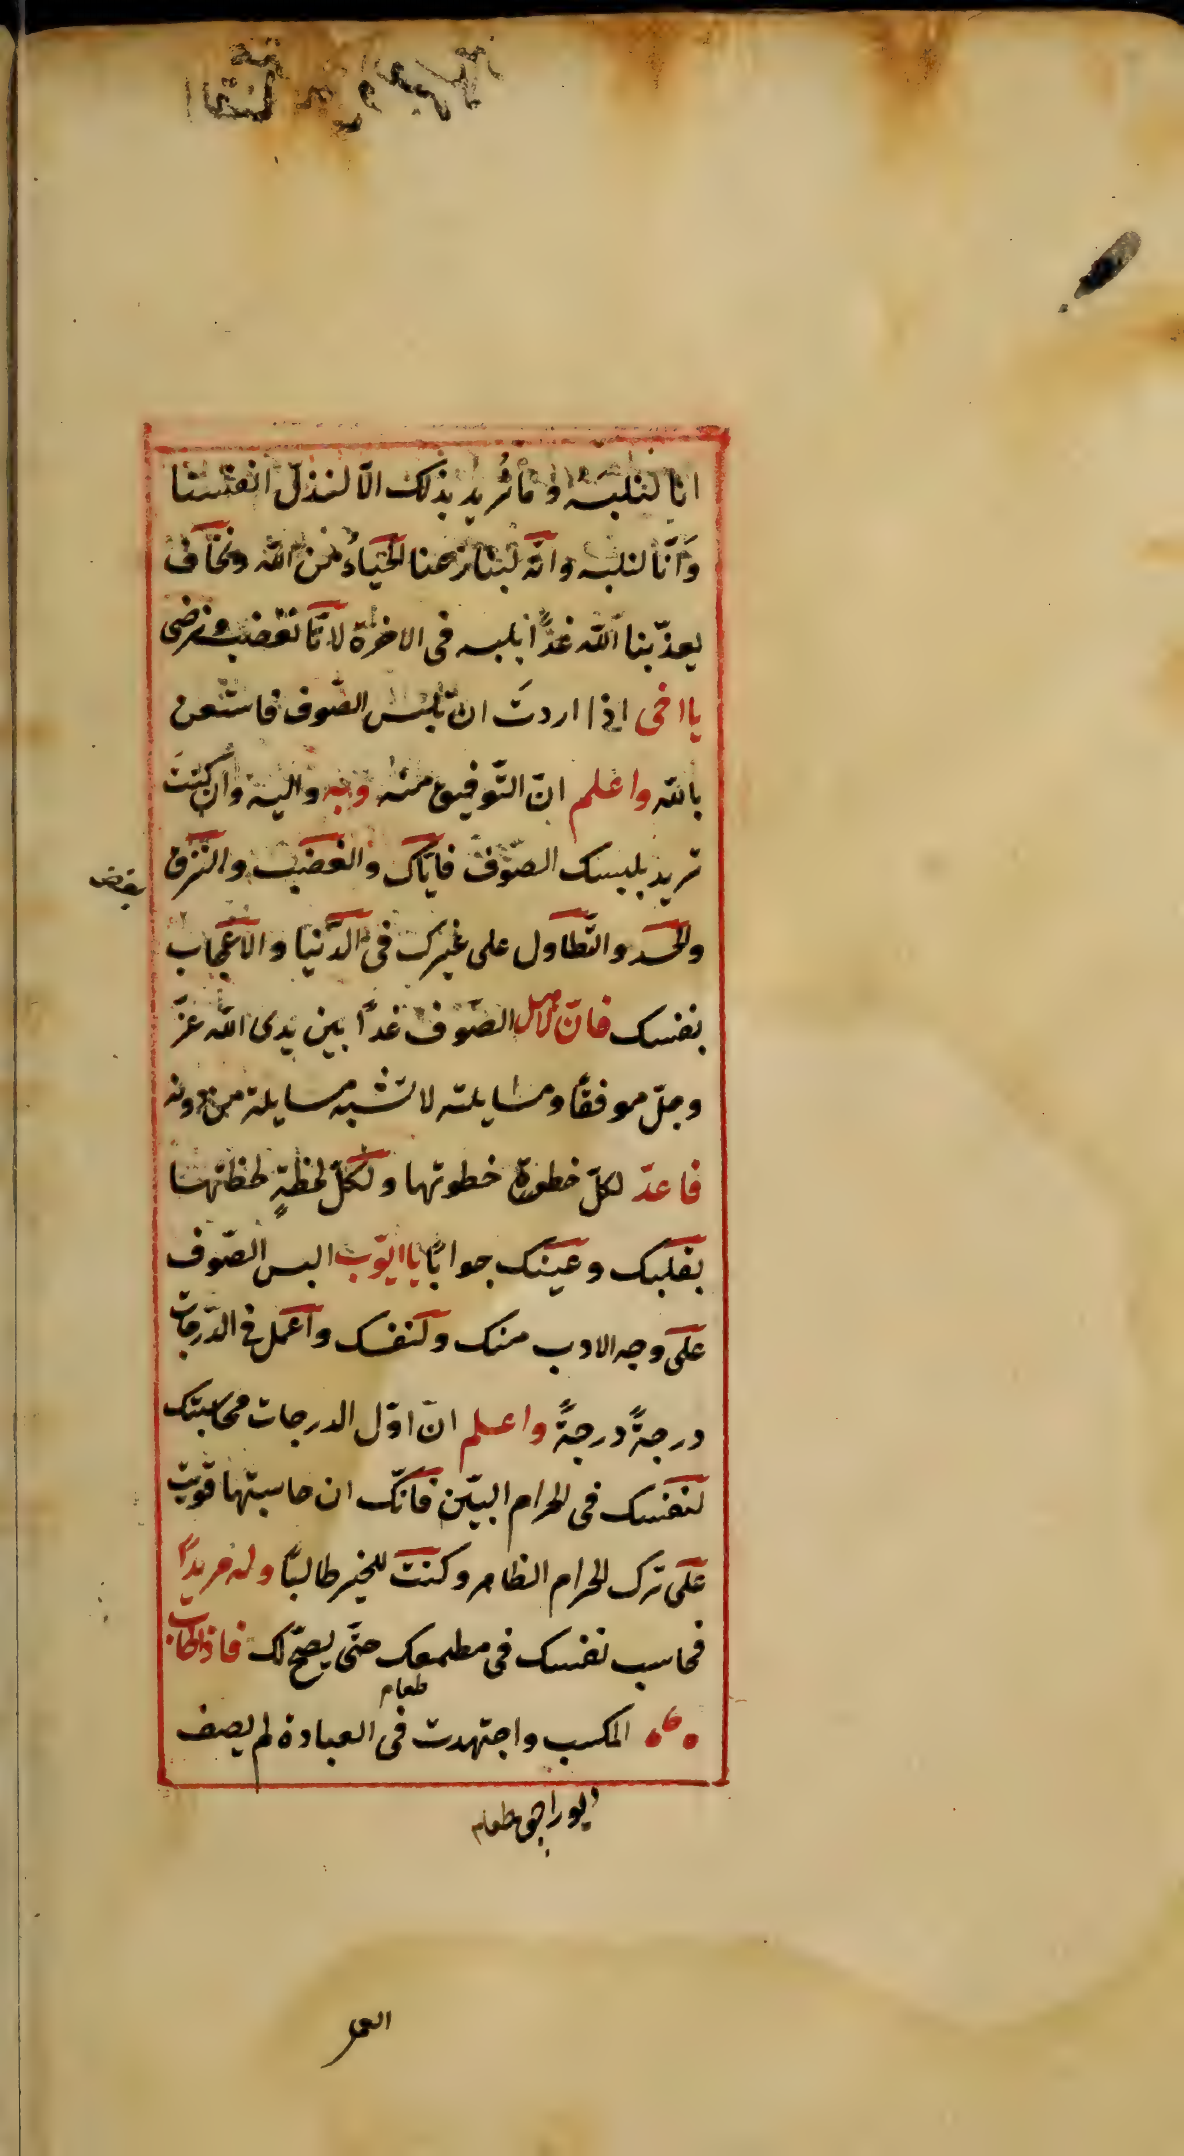 انا لنلبسه وما نريد بذلك الّا لنذلّ انفسنا
وَانّا لنلبسه وانّه لينازعنا الحَيَاءُ من الله ونخاف
يعذّبنا الله غدًا بلبسه فى الاخرة لانّا نغضب ونرضى
يا اخى اذا اردتَ ان تلبس الصّوف فاستعن
بالله واعلم انّ التّوفيق منه وبه واليه وان كنتَ
تريد بلبسك الصّوف فايّاك والغضب والنزق
والحسد والتّطاول على غيرك فى الدّنيا والاعجاب
بنفسك فانّ لاهل الصّوف غدًا بين يدى الله عزّ
وجلّ موقفًا ومسايلته لا تشبه مسايلة من دونه
فاعدّ لكلّ خطوة خطوتها ولكلّ لحظةٍ لحظتها
بقلبك وعينك جوابًا يا ايّوب البس الصّوف
على وجه الادب منك ولنفسك واعمل فى الدّرجات
درجةً درجةً واعلم انّ اوّل الدرجات محاسبتك
لنفسك فى الحرام البيّن فانّك ان حاسبتها قويت
على ترك الحرام الظاهر وكنتَ للخير طالبًا وله مريدًا
فحاسب نفسك فى مطمعك حتّى يصحّ لك فاذا طاب
المكسب واجتهدت فى العبادة لم يصف
طعام
العمر